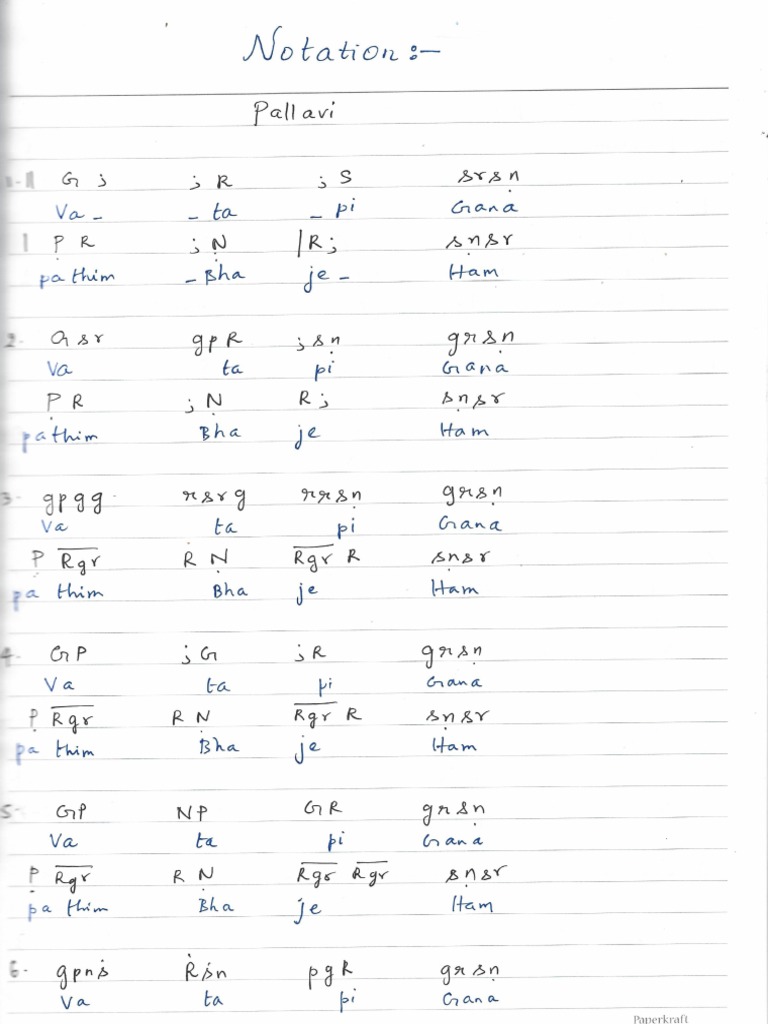 Notation :-
Pallavi
G ; ; R ; S s r s ṇ
Va _ _ ta _ pi Gana
Ṗ R ; Ṇ | R ; s ṇ s r
pa thim _ Bha je _ Ham
2. G s r g p R ; s ṇ g r s ṇ
Va ta pi Gana
P̣ R ; Ṇ R ; s ṇ s r
pa thim Bha je Ham
3. g p g g r s r g r r s ṇ g r s ṇ
Va ta pi Gana
P̣ R̅g̅r̅ R Ṇ R̅g̅r̅ R s ṇ s r
pa thim Bha je Ham
4. G P ; G ; R g r s ṇ
Va ta pi Gana
P̣ R̅g̅r̅ R Ṇ R̅g̅r̅ R s ṇ s r
pa thim Bha je Ham
5. G P N P G R g r s ṇ
Va ta pi Gana
P̣ R̅g̅r̅ R Ṇ R̅g̅r̅ R̅g̅r̅ s ṇ s r
pa thim Bha je Ham
6. g p n ṡ Ṙ ṡ n p g R g r s ṇ
Va ta pi Gana
Paperkraft